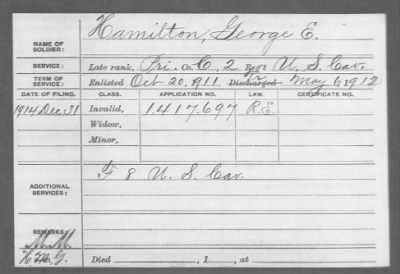 Hamilton, George E.
NAME OF SOLDIER:
SERVICE: Late rank, Pri. Co. C. 2 Reg't U. S. Cav.
TERM OF SERVICE: Enlisted Oct. 20, 1911 Discharged May 6, 1912
DATE OF FILING. CLASS. APPLICATION NO. LAW. CERTIFICATE NO.
1914 Dec. 31 Invalid, 1.417.697 R.E.
Widow,
Minor,
F 8 U. S. Cav.
ADDITIONAL SERVICES:
REMARKS:
M. M.
Died , 1 , at